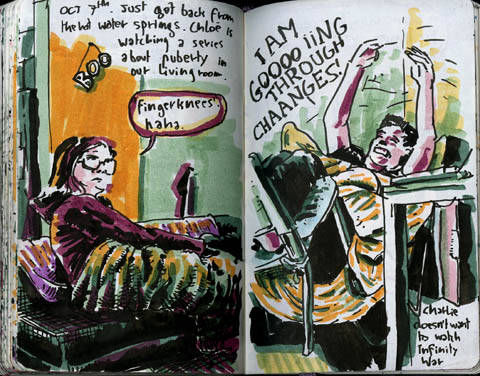 OCT 7th. Just got back from
the hot water springs. Chloë is
watching a series
about puberty in
our living room.
BOO
"Fingerknees"
haha.
I AM
GOOOOIING
THROUGH
CHAANGES!
Charlie
doesn't want
to watch
Infinity
War